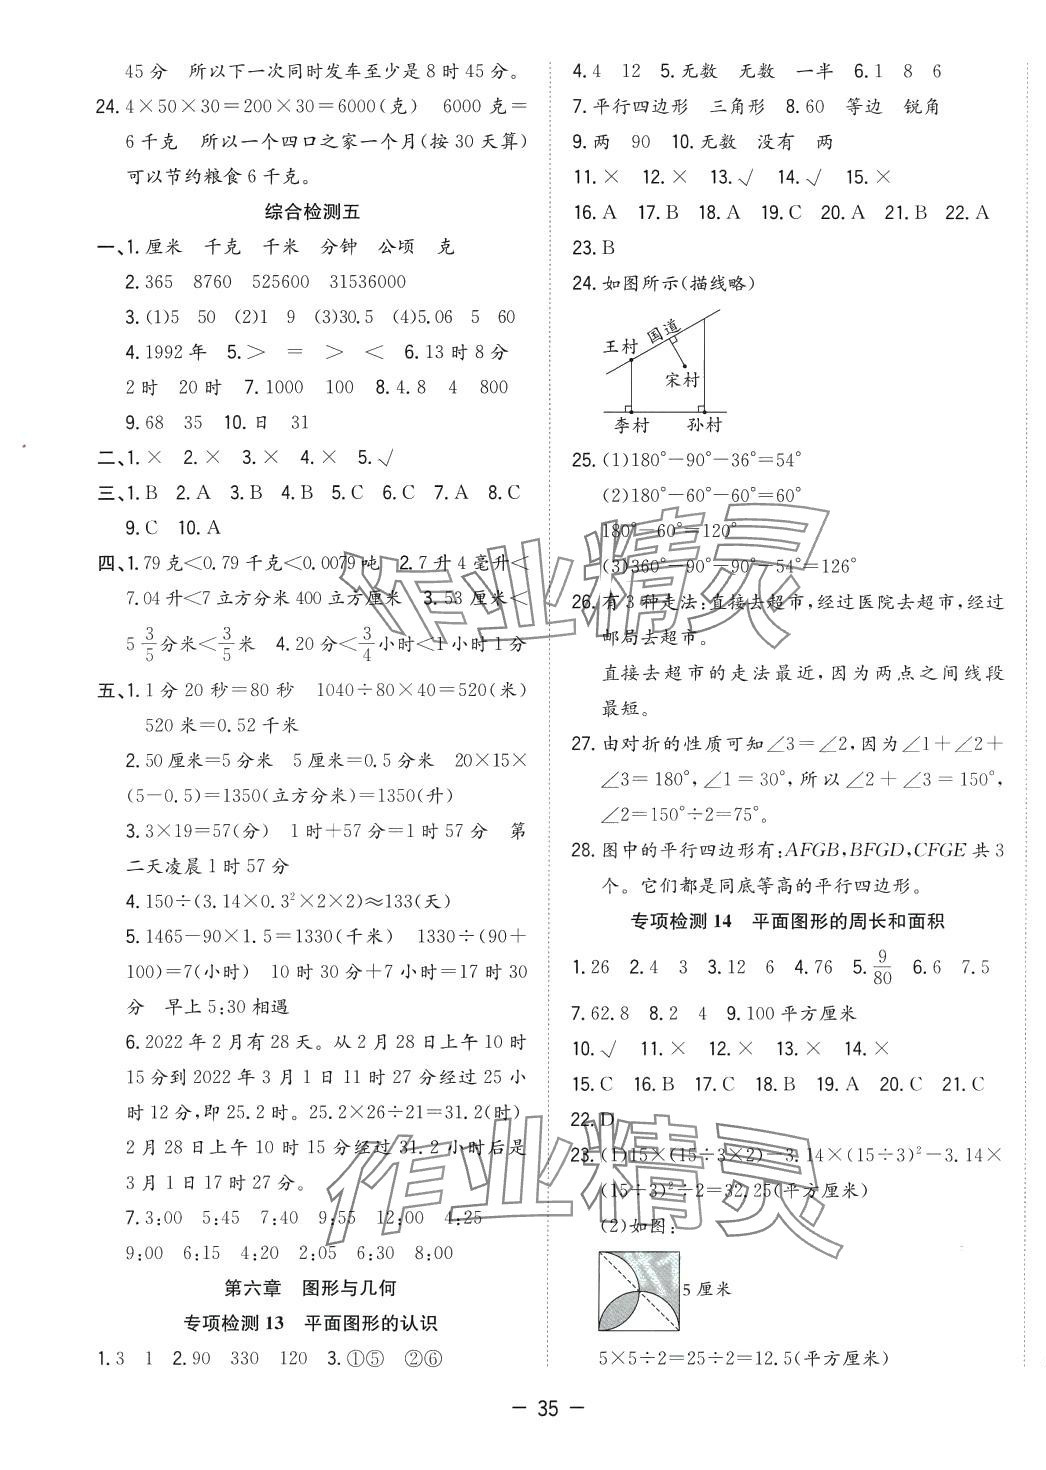 45 分　所以下一次同时发车至少是 8 时 45 分。
24. 4×50×30=200×30=6000(克)　6000 克=
6 千克　所以一个四口之家一个月(按 30 天算)
可以节约粮食 6 千克。
综合检测五
一、1. 厘米　千克　千米　分钟　公顷　克
2. 365　8760　525600　31536000
3. (1)5　50　(2)1　9　(3)30.5　(4)5.06　5　60
4. 1992 年　5. >　=　>　<　6. 13 时 8 分
2 时　20 时　7. 1000　100　8. 4.8　4　800
9. 68　35　10. 日　31
二、1. ×　2. ×　3. ×　4. ×　5. √
三、1. B　2. A　3. B　4. B　5. C　6. C　7. A　8. C
9. C　10. A
四、1. 79 克<0.79 千克<0.0079 吨　2. 7 升 4 毫升<
7.04 升<7 立方分米 400 立方厘米　3. 53 厘米<
5 3/5 分米<3/5 米　4. 20 分<3/4 小时<1 小时 1 分
五、1. 1 分 20 秒=80 秒　1040÷80×40=520(米)
520 米=0.52 千米
2. 50 厘米=5 分米　5 厘米=0.5 分米　20×15×
(5-0.5)=1350(立方分米)=1350(升)
3. 3×19=57(分)　1 时+57 分=1 时 57 分　第
二天凌晨 1 时 57 分
4. 150÷(3.14×0.3²×2×2)≈133(天)
5. 1465-90×1.5=1330(千米)　1330÷(90+
100)=7(小时)　10 时 30 分+7 小时=17 时 30
分　早上 5:30 相遇
6. 2022 年 2 月有 28 天。从 2 月 28 日上午 10 时
15 分到 2022 年 3 月 1 日 11 时 27 分经过 25 小
时 12 分,即 25.2 时。25.2×26÷21=31.2(时)
2 月 28 日上午 10 时 15 分经过 31.2 小时后是
3 月 1 日 17 时 27 分。
7. 3:00　5:45　7:40　9:55　12:00　4:25
9:00　6:15　4:20　2:05　6:30　8:00
第六章　图形与几何
专项检测 13　平面图形的认识
1. 3　1　2. 90　330　120　3. ①⑤　②⑥
4. 4　12　5. 无数　无数　一半　6. 1　8　6
7. 平行四边形　三角形　8. 60　等边　锐角
9. 两　90　10. 无数　没有　两
11. ×　12. ×　13. √　14. √　15. ×
16. A　17. B　18. A　19. C　20. A　21. B　22. A
23. B
24. 如图所示(描线略)
国道
王村
宋村
李村　孙村
25. (1)180°-90°-36°=54°
(2)180°-60°-60°=60°
180°-60°=120°
(3)360°-90°-90°-54°=126°
26. 有 3 种走法:直接去超市,经过医院去超市,经过
邮局去超市。
直接去超市的走法最近,因为两点之间线段
最短。
27. 由对折的性质可知∠3=∠2,因为∠1+∠2+
∠3=180°,∠1=30°,所以∠2+∠3=150°,
∠2=150°÷2=75°。
28. 图中的平行四边形有:AFGB,BFGD,CFGE 共 3
个。它们都是同底等高的平行四边形。
专项检测 14　平面图形的周长和面积
1. 26　2. 4　3　3. 12　6　4. 76　5. 9/80　6. 6　7.5
7. 62.8　8. 2　4　9. 100 平方厘米
10. √　11. ×　12. ×　13. ×　14. ×
15. C　16. B　17. C　18. B　19. A　20. C　21. C
22. D
23. (1)15×(15÷3×2)-3.14×(15÷3)²-3.14×
(15÷3)²÷2=32.25(平方厘米)
(2)如图:
5 厘米
5×5÷2=25÷2=12.5(平方厘米)
- 35 -
作业精灵
作业精灵